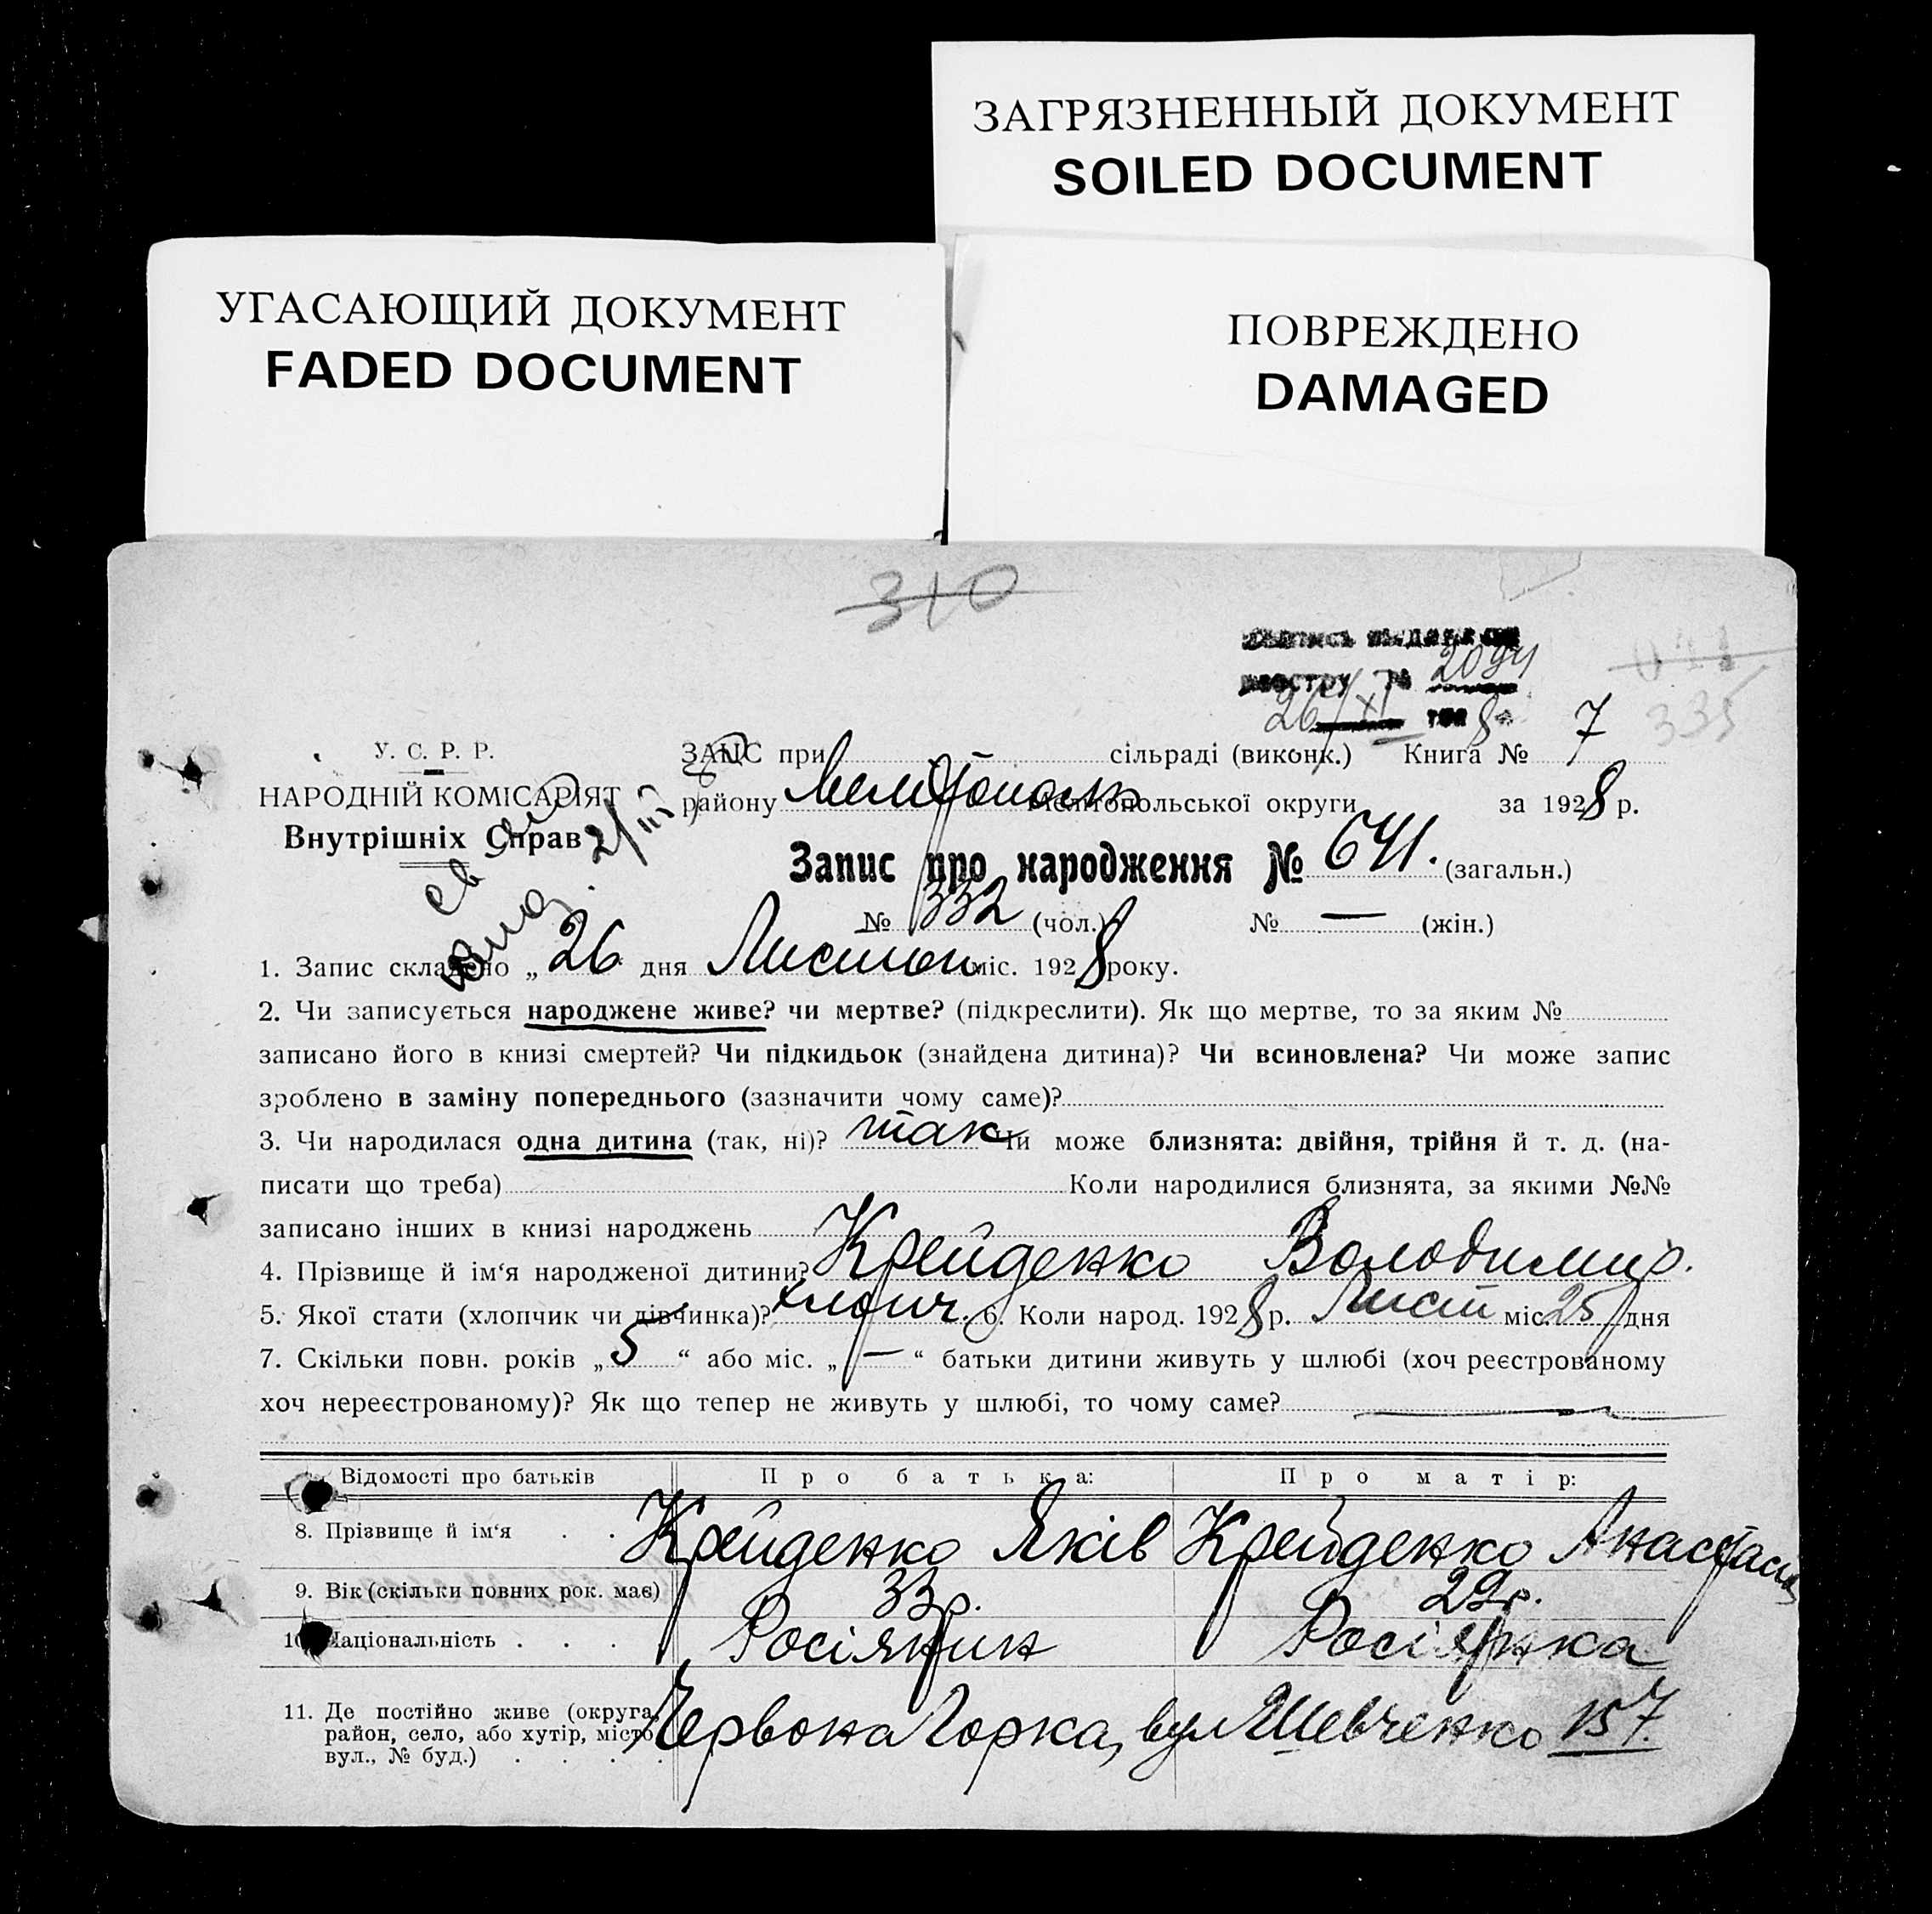 ЗАГРЯЗНЕННЫЙ ДОКУМЕНТ
SOILED DOCUMENT
УГАСАЮЩИЙ ДОКУМЕНТ
FADED DOCUMENT
ПОВРЕЖДЕНО
DAMAGED
310
реєстру № 2094
26/XI 1928 р.
335
У. С. Р. Р.
НАРОДНІЙ КОМІСАРІЯТ
Внутрішніх Справ
ЗАГС при сільраді (виконк.) Книга № 7
району Мелітополь Мелітопольської округи за 1928 р.
Запис про народження № 641. (загальн.)
№ 332 (чол.) № — (жін.)
1. Запис складено „26 дня Листоп. міс. 1928 року.
2. Чи записується народжене живе? чи мертве? (підкреслити). Як що мертве, то за яким №
записано його в книзі смертей? Чи підкидьок (знайдена дитина)? Чи всиновлена? Чи може запис
зроблено в заміну попереднього (зазначити чому саме)?
3. Чи народилася одна дитина (так, ні)? так Чи може близнята: двійня, трійня й т. д. (на-
писати що треба) Коли народилися близнята, за якими №№
записано інших в книзі народжень
4. Прізвище й ім‘я народженої дитини? Крейденко Володимир.
5. Якої стати (хлопчик чи дівчинка)? хлопч. 6. Коли народ. 1928 р. Лист міс. 25 дня
7. Скільки повн. років „5“ або міс. „—“ батьки дитини живуть у шлюбі (хоч реєстрованому
хоч нереєстрованому)? Як що тепер не живуть у шлюбі, то чому саме? —
Відомості про батьків Про батька: Про матір:
8. Прізвище й ім‘я . . Крейденко Яків Крейденко Анастасія
9. Вік (скільки повних рок. має) 33 р. 29 р.
10. Національність . . . Росіянин Росіянка
11. Де постійно живе (округа, район, село, або хутір, місто, вул., № буд.) . . . . Червона Горка, вул Шевченко 157.